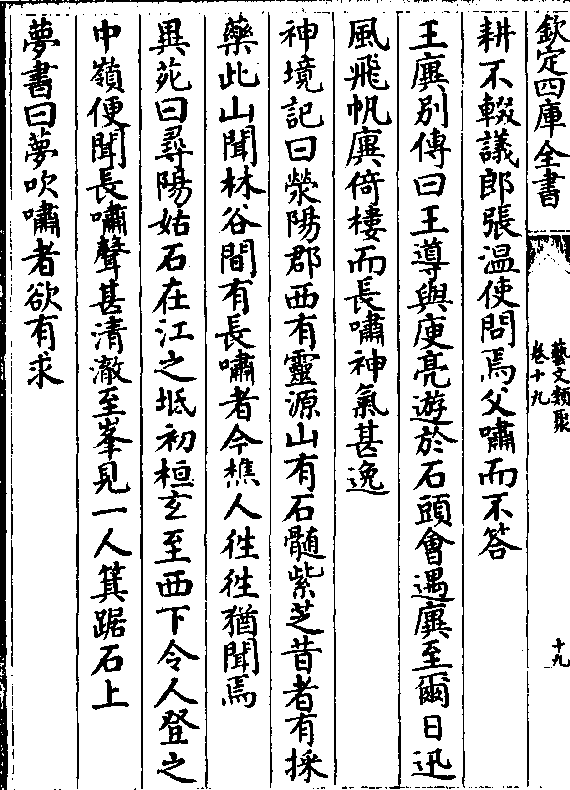 欽定四庫全書
藝文類聚
卷十九
十九
耕不輟議郎張温使問焉父嘯而不答
王廙别傳曰王導與庾亮遊於石頭會遇廙至爾日迅
風飛帆廙倚棲而長嘯神氣甚逸
神境記曰滎陽郡西有靈源山有石髄紫芝昔者有採
藥此山聞林谷間有長嘯者今樵人徃徃猶聞焉
異苑曰尋陽姑石在江之坻初桓玄至西下令人登之
中嶺便聞長嘯聲甚清澈至峯見一人箕踞石上
夢書曰夢吹嘯者欲有求